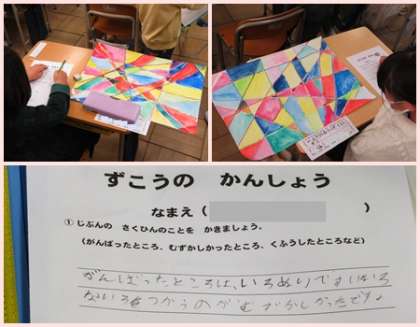 ずこうの かんしょう
なまえ( )
① じぶんの さくひんのことを かきましょう。
(がんばったところ、むずかしかったところ、くふうしたところなど)
がんばったところは、いろぬりです。いろいろ
ないろをつかうのがむずかしかったです。